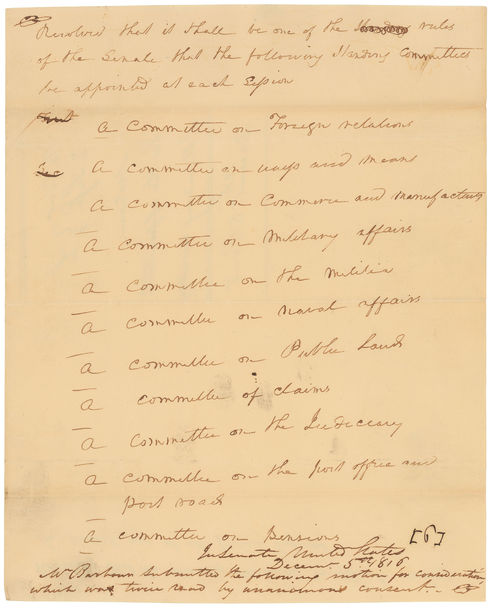 Resolved that it shall be one of the rules
of the Senate that the following Standing Committees
be appointed at each Session
A Committee on Foreign relations
A committee on ways and means
A committee on Commerce and manufactures
A committee on Military affairs
A committee on the Militia
A committee on naval affairs
A committee on Public Lands
A committee of claims
A committee on the Judiciary
A committee on the post office and
post roads
A committee on Pensions
[6]
In Senate United States
Decem 5th 1816
Mr Barbour submitted the following motion for consideration,
which was twice read by unanimous consent.